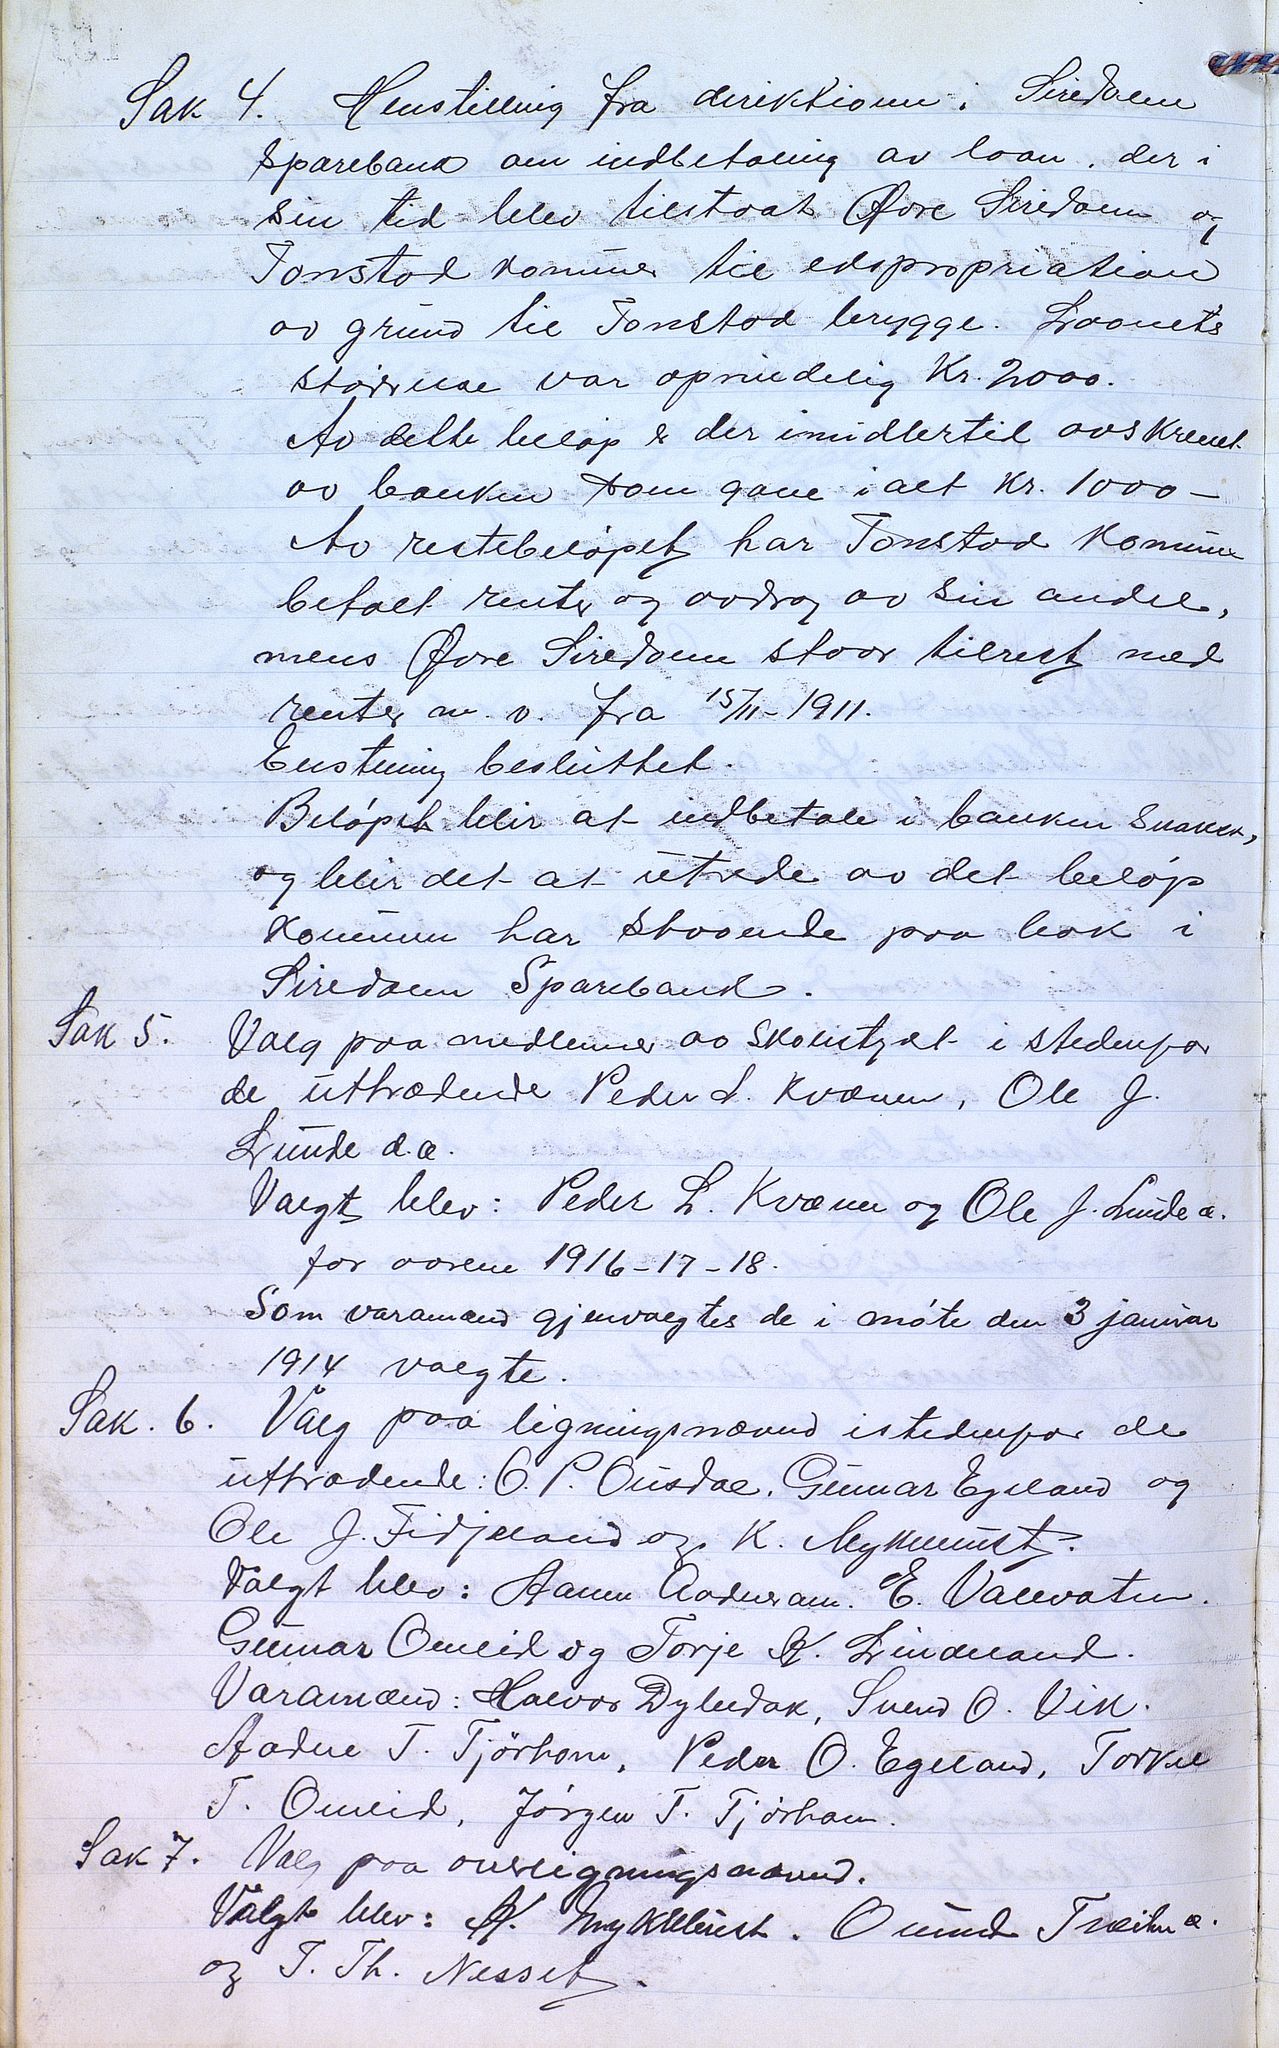 Sak 4. Henstilling fra direktionen i Siredalen
Sparebank om indbetaling av laan, der i
sin tid blev tilstaat Øvre Siredalen og
Tonstad kommuner til ekspropriation
av grund til Tonstad brygge. Laanets
størrelse var oprindelig Kr. 2000.
Av dette beløp er der imidlertid avskrevet
av banken som gave ialt Kr. 1000-
Av restebeløpet har Tonstad Kommune
betalt renter og avdrag av sin andel,
mens Øvre Siredalen staar tilrest med
renter m. v. fra 15/11-1911.
Enstemmig besluttet.
Beløpet blir at indbetale i banken snarest,
og blir det at utrede av det beløp
Kommunen har staaende paa bok i
Siredalen Sparebank.
Sak 5. Valg paa medlemmer av Skolestyret i stedenfor
de uttrædende Peder L. Kvænen, Ole J.
Lunde d.æ.
Valgt blev: Peder L. Kvænen og Ole J. Lunde æ.
for aarene 1916-17-18.
Som varamænd gjenvalgtes de i møte den 3 januar
1914 valgte.
Sak. 6. Valg paa ligningsnævnd istedenfor de
uttrædende: O. P. Ousdal, Gunnar Egeland og
Ole J. Fidjeland og K. Myklebust.
Valgt blev: Aanen Aadneram. E. Valevatn.
Gunnar Omlid og Torje K. Lindeland.
Varamænd: Halvor Dybedak, Svend O. Vik.
Aadne T. Tjørhom, Peder O. Egeland, Torkel
T. Omlid, Jørgen T. Tjørhom.
Sak 7. Valg paa overligningsnævnd.
Valgt blev: K. Myklebust. Omund Træiln æ.
og T. Th. Nesset.